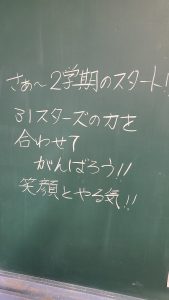 さぁ～2学期のスタート!
31スターズの力を
合わせて
がんばろう!!
笑顔とやる気!!